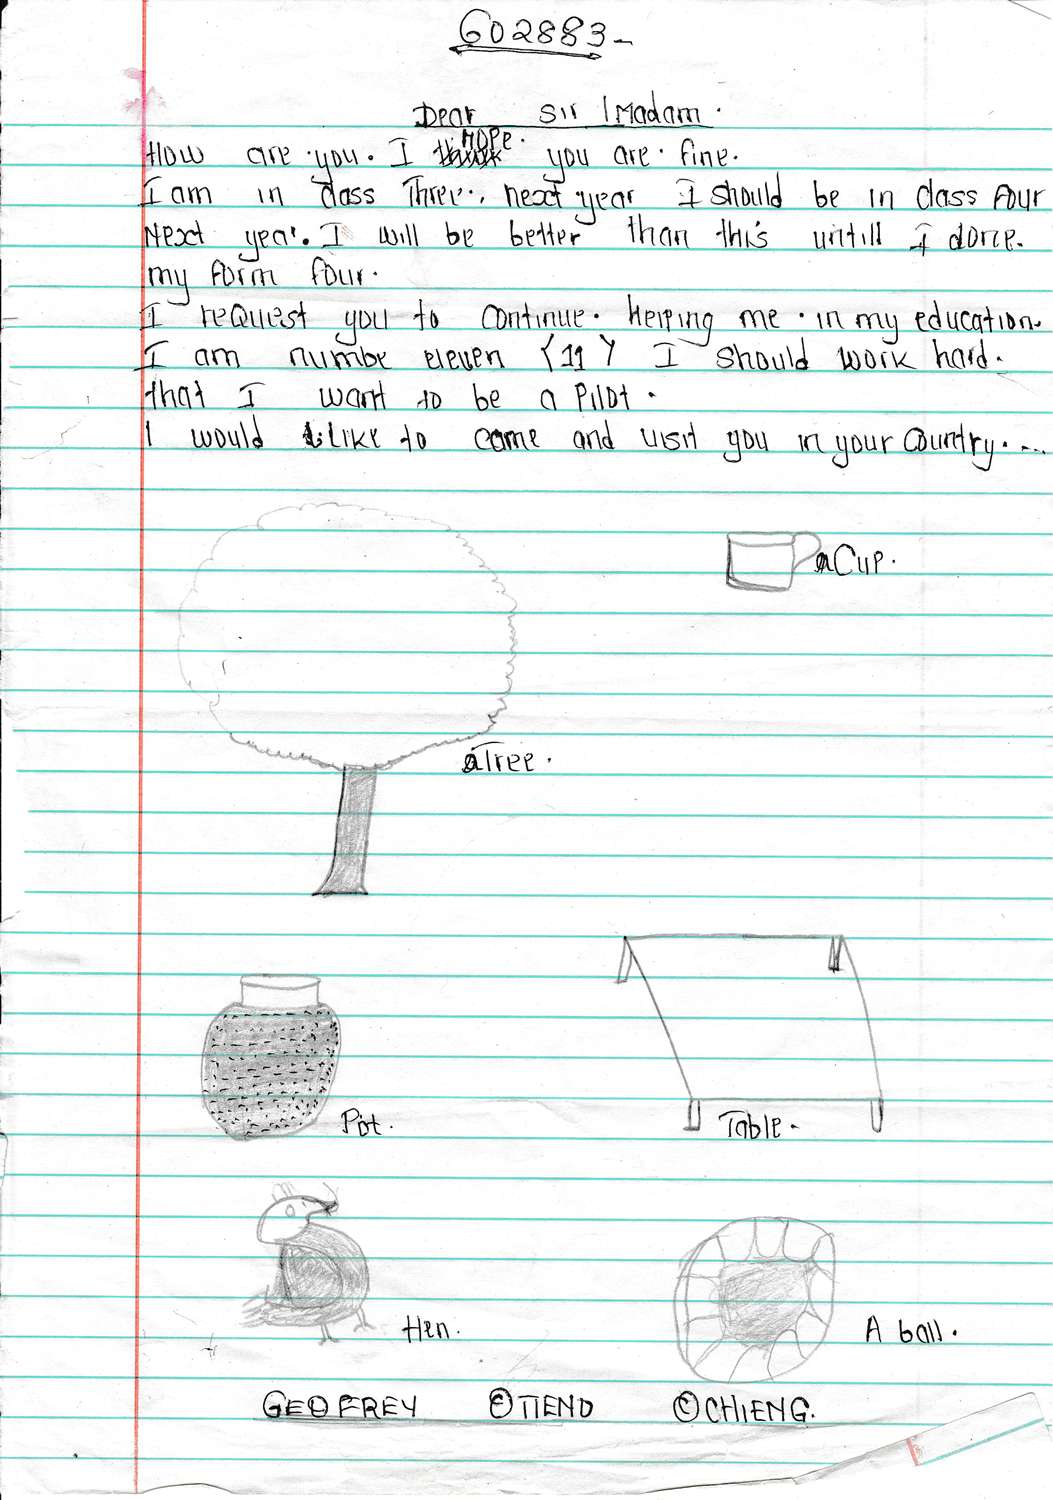 602883-
Dear Sir / Madam.
HOPE.
How are you. I think you are fine.
I am in class Three. next year I should be in class four
Next year. I will be better than this untill I done.
my form four.
I reQuest you to continue. Helping me. in my education.
I am numbe eleven (11) I should work hard.
that I want to be a Pilot.
I would Like to come and visit you in your Country. ...
a Cup.
a Tree.
Pot.
Table.
Hen.
A ball.
GEOFREY OTIENO OCHIENG.